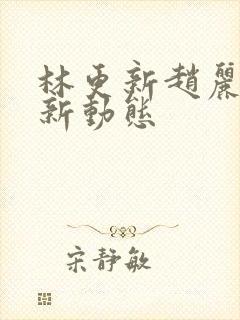 林更新趙麗
新動態
宋靜敏